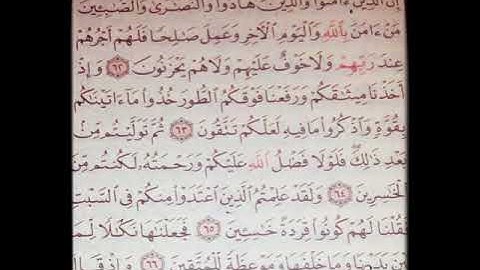 إِنَّ ٱلَّذِينَ ءَامَنُوا۟ وَٱلَّذِينَ هَادُوا۟ وَٱلنَّصَٰرَىٰ وَٱلصَّٰبِـِٔينَ
مَنْ ءَامَنَ بِٱللَّهِ وَٱلْيَوْمِ ٱلْـَٔاخِرِ وَعَمِلَ صَٰلِحًا فَلَهُمْ أَجْرُهُمْ
عِندَ رَبِّهِمْ وَلَا خَوْفٌ عَلَيْهِمْ وَلَا هُمْ يَحْزَنُونَ ٦٢ وَإِذْ
أَخَذْنَا مِيثَٰقَكُمْ وَرَفَعْنَا فَوْقَكُمُ ٱلطُّورَ خُذُوا۟ مَآ ءَاتَيْنَٰكُم
بِقُوَّةٍ وَٱذْكُرُوا۟ مَا فِيهِ لَعَلَّكُمْ تَتَّقُونَ ٦٣ ثُمَّ تَوَلَّيْتُم مِّنۢ
بَعْدِ ذَٰلِكَ ۖ فَلَوْلَا فَضْلُ ٱللَّهِ عَلَيْكُمْ وَرَحْمَتُهُۥ لَكُنتُم مِّنَ
ٱلْخَٰسِرِينَ ٦٤ وَلَقَدْ عَلِمْتُمُ ٱلَّذِينَ ٱعْتَدَوْا۟ مِنكُمْ فِى ٱلسَّبْتِ
فَقُلْنَا لَهُمْ كُونُوا۟ قِرَدَةً خَٰسِـِٔينَ ٦٥ فَجَعَلْنَٰهَا نَكَٰلًا لِّمَا
بَيْنَ يَدَيْهَا وَمَا خَلْفَهَا وَمَوْعِظَةً لِّلْمُتَّقِينَ ٦٦ وَإِذْ قَالَ